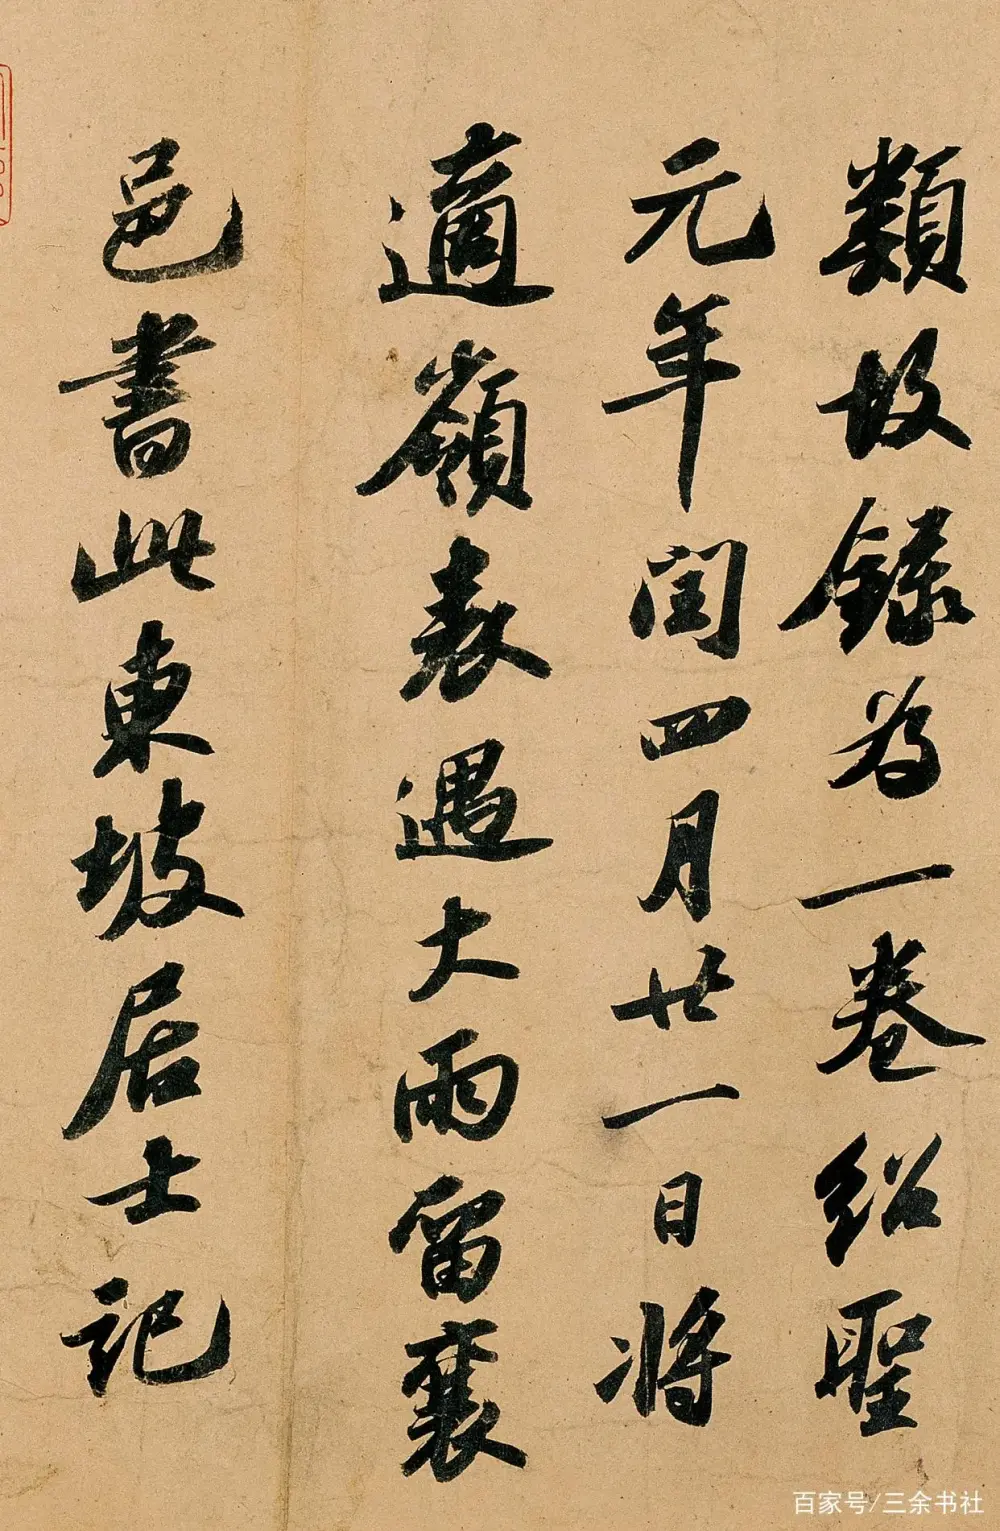 類故錄為一卷紹聖
元年閏四月廿一日將
適嶺表遇大雨留襄
邑書此東坡居士記
百家号/三余书社